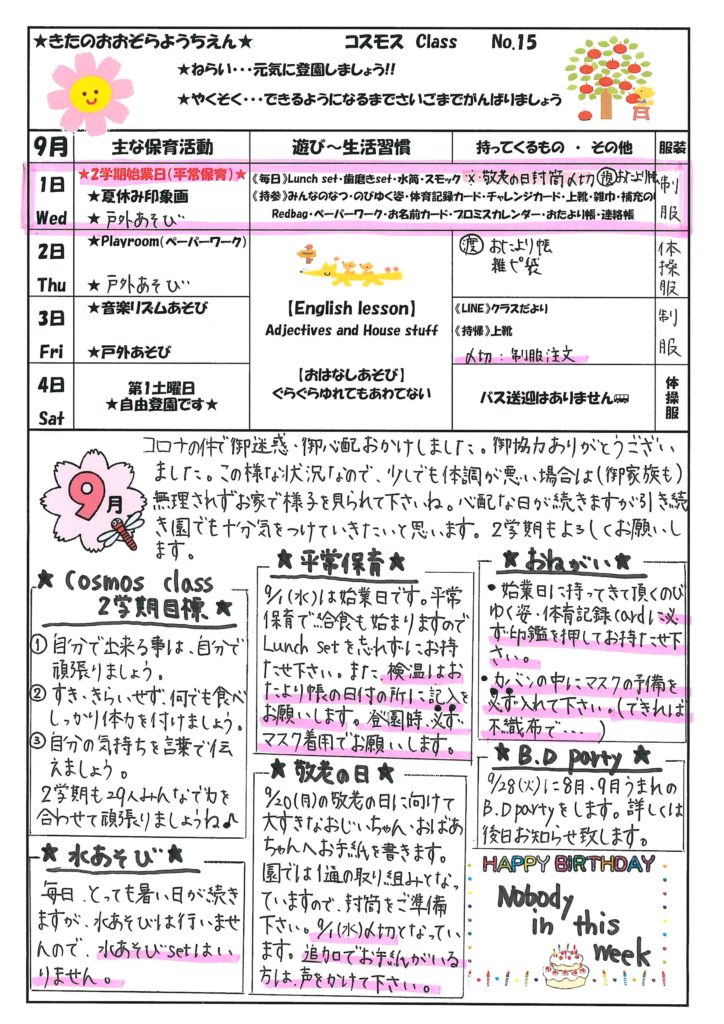 ★きたのおおぞらようちえん★ コスモス Class No.15
★ねらい・・・元気に登園しましょう!!
★やくそく・・・できるようになるまでさいごまでがんばりましょう
9月 主な保育活動 遊び～生活習慣 持ってくるもの ・ その他 服装
1日 Wed
★2学期始業日(平常保育)★
★夏休み印象画
★戸外あそび
《毎日》Lunch set・歯磨きset・水筒・スモック ※・敬老の日封筒〆切 渡おたより帳
《持参》みんなのなつ・のびゆく姿・体育記録カード・チャレンジカード・上靴・雑巾・補充の
Redbag・ペーパーワーク・お名前カード・プロミスカレンダー・おたより帳・連絡帳
制服
2日 Thu
★Playroom(ペーパーワーク)
★戸外あそび
渡 おたより帳
雑ピ袋
体操服
3日 Fri
★音楽リズムあそび
★戸外あそび
【English lesson】
Adjectives and House stuff
《LINE》クラスだより
《持帰》上靴
〆切:制服注文
制服
4日 Sat
第1土曜日
★自由登園です★
【おはなしあそび】
ぐらぐらゆれてもあわてない
バス送迎はありません
体操服
9月
コロナの件で御迷惑・御心配おかけしました。御協力ありがとうござい
ました。この様な状況なので、少しでも体調が悪い場合は(御家族も)
無理されずお家で様子を見られて下さいね。心配な日が続きますが引き続
き園でも十分気をつけていきたいと思います。2学期もよろしくお願いし
ます。
★Cosmos class
2学期目標★
①自分で出来る事は、自分で
頑張りましょう。
②すき・きらいせず、何でも食べ
しっかり体力を付けましょう。
③自分の気持ちを言葉で伝
えましょう。
2学期も29人みんなで力を
合わせて頑張りましょうね♪
★水あそび★
毎日、とっても暑い日が続き
ますが、水あそびは行いませ
んので、水あそびsetはい
りません。
★平常保育★
9/1(水)は始業日です。平常
保育で給食も始まりますので
Lunch setを忘れずにお持
たせ下さい。また、検温はお
たより帳の日付の所に記入を
お願いします。登園時、必ず、
マスク着用でお願いします。
★敬老の日★
9/20(月)の敬老の日に向けて
大すきなおじいちゃん・おばあ
ちゃんへお手紙を書きます。
園では1通の取り組みとなっ
ていますので、封筒をご準備
下さい。9/1(水)〆切となっていま
す。追加でお手紙がいる
方は、声をかけて下さい。
★おねがい★
・始業日に持ってきて頂くのび
ゆく姿・体育記録cardに必
ず印鑑を押してお持たせ下
さい。
・カバンの中にマスクの予備を
必ず入れて下さい。(できれば
不織布で・・・)
★B.D party★
9/28(火)に8月・9月うまれの
B.D partyをします。詳しくは
後日お知らせ致します。
HAPPY BIRTHDAY
Nobody
in this
week